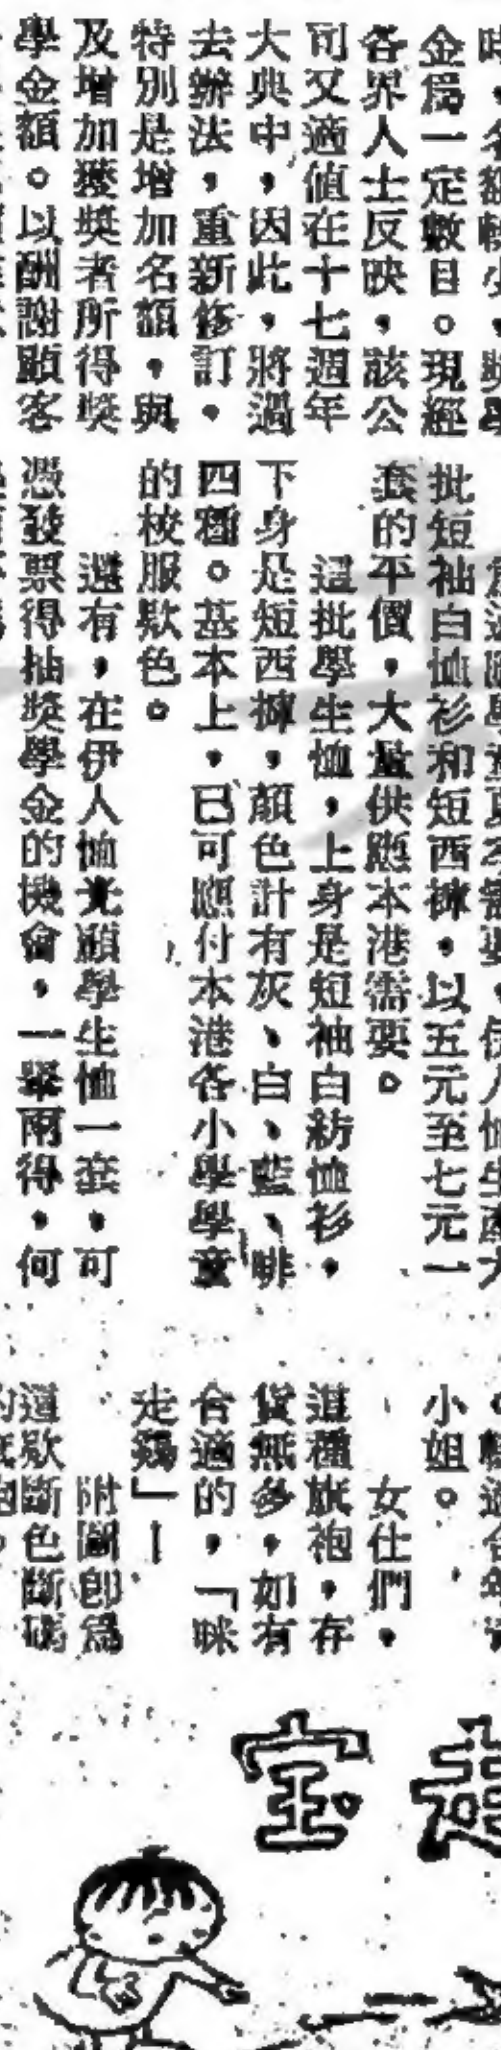 時，名額較少，獎學
金爲一定數目。現經
各界人士反映，該公
司又適值在十七週年
大典中，因此，將過
去辦法，重新修訂。
特別是增加名額，與
及增加獲獎者所得獎
學金額。以酬謝顧客
批短袖白恤衫和短西褲，以五元至七元一
套的平價，大量供應本港需要。
這批學生恤，上身是短袖白紡恤衫，
下身是短西褲，顏色計有灰、白、藍、啡
四種。基本上，已可應付本港各小學學童
的校服欵色。
還有，在伊人恤光顧學生恤一套，可
憑發票得抽獎學金的機會，一舉兩得，何
小姐。
女仕們，
這種旗袍，存
貨無多，如有
合適的，「咪
走鷄」！
附圖即爲
這欵斷色斷碼
走
宝